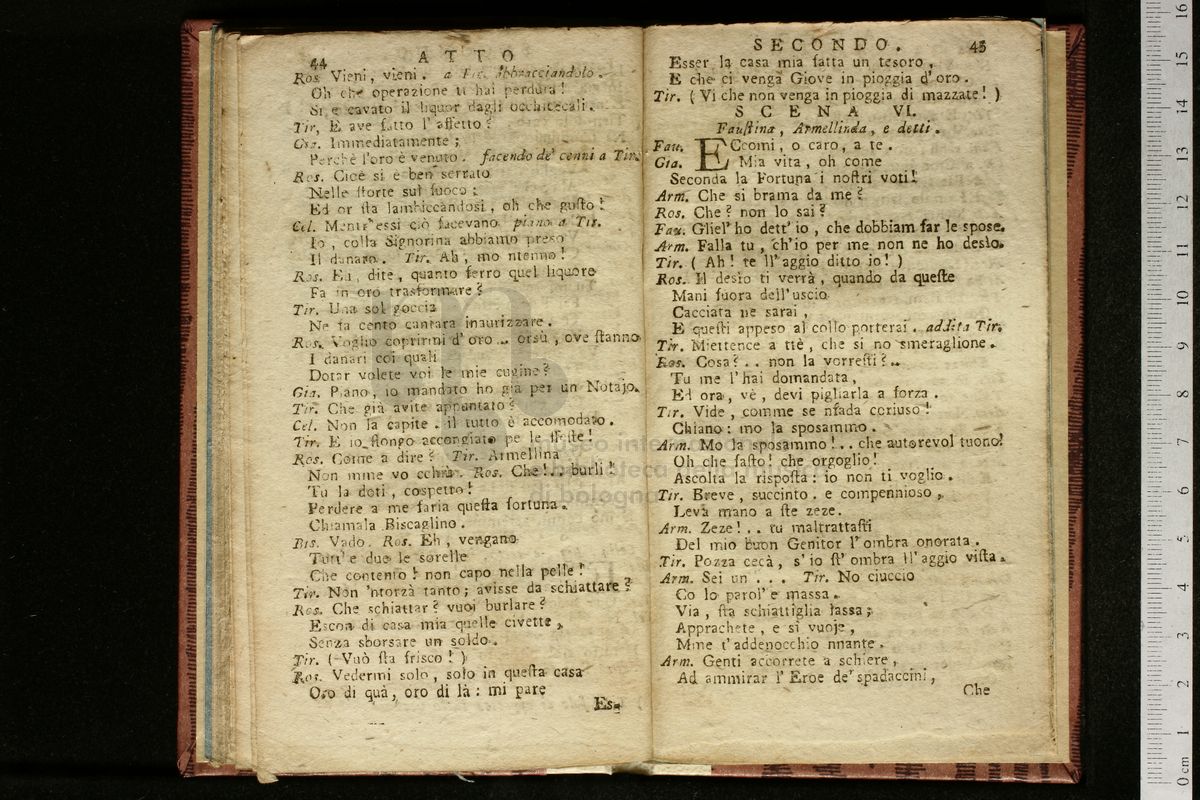 44 ATTO
Ros. Vieni, vieni. a Tir. abbracciandolo.
Oh che operazione ti hai perduta!
Si è cavato il liquor dagli occhi cecali.
Tir. E ave fatto l'affetto?
Gia. Immediatamente;
Perchè l'oro è venuto. facendo de' cenni a Tir.
Ros. Cioè si è ben serrato
Nelle storte sul fuoco:
Ed or sta lambiccandosi, oh che gusto!
Cel. Mentr'essi ciò facevano piano a Tir.
Io, colla Signorina abbiamo preso
Il danaro. Tir. Ah, mo ntenno!
Ros. Eh, dite, quanto ferro quel liquore
Fa in oro trasformare?
Tir. Una sol goccia
Ne fa cento cantara inaurizzare.
Ros. Voglio coprirmi d'oro... orsù, ove stanno
I danari coi quali
Dotar volete voi le mie cugine?
Gia. Piano, io mandato ho già per un Notajo.
Tir. Che già avite appuntato?
Cel. Non la capite. il tutto è accomodato.
Tir. E io stongo accongiato pe le feste!
Ros. Come a dire? Tir. Armellina
Non mme vo cchiù. Ros. Che!.. burli!
Tu la doti, cospetto!
Perdere a me faria questa fortuna.
Chiamala Biscaglino.
Bis. Vado. Ros. Eh, vengano
Tutt'e due le sorelle
Che contento! non capo nella pelle!
Tir. Non 'ntorzà tanto; avisse da schiattare?
Ros. Che schiattar? vuoi burlare?
Escon di casa mia quelle civette,
Senza sborsare un soldo.
Tir. (Vuò sta frisco!)
Ros. Vedermi solo, solo in questa casa
Oro di quà, oro di là: mi pare
Es-
SECONDO. 45
Esser la casa mia fatta un tesoro,
E che ci venga Giove in pioggia d'oro.
Tir. (Vi che non venga in pioggia di mazzate!)
SCENA VI.
Faustina, Armellinda, e detti.
Fau. ECcomi, o caro, a te.
Gia. Mia vita, oh come
Seconda la Fortuna i nostri voti!
Arm. Che si brama da me?
Ros. Che? non lo sai?
Fau. Gliel' ho dett' io, che dobbiam far le spose.
Arm. Falla tu, ch'io per me non ne ho desio.
Tir. (Ah! te ll'aggio ditto io!)
Ros. Il desio ti verrà, quando da queste
Mani fuora dell'uscio
Cacciata ne sarai,
E questi appeso al collo porterai. addita Tir.
Tir. Miettence a ttè, che si no smeraglione.
Ros. Cosa?.. non la vorresti?..
Tu me l'hai domandata,
Ed ora, vè, devi pigliarla a forza.
Tir. Vide, comme se nfada coriuso!
Chiano: mo la sposammo.
Arm. Mo la sposammo!.. che autorevol tuono!
Oh che fasto! che orgoglio!
Ascolta la risposta: io non ti voglio.
Tir. Breve, succinto. e compennioso,
Leva mano a ste zeze.
Arm. Zeze!.. tu maltrattasti
Del mio buon Genitor l'ombra onorata.
Tir. Pozza cecà, s'io st'ombra ll'aggio vista.
Arm. Sei un... Tir. No ciuccio
Co lo parol' e massa.
Via, sta schiattiglia lassa;
Apprachete, e si vuoje,
Mme t'addenocchio nnante.
Arm. Genti accorrete a schiere,
Ad ammirar l'Eroe de' spadaccini,
Che
museo internazionale
e biblioteca della musica
di bologna
16
15
14
13
12
11
10
9
8
7
6
5
4
3
2
1
0 cm